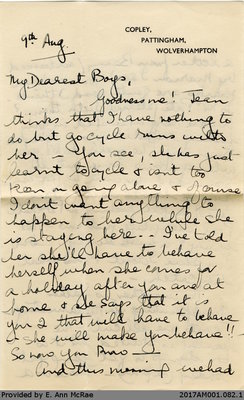 COPLEY,
PATTINGHAM,
WOLVERHAMPTON
9th Aug
My Dearest Boys,
Goodness me! Jean
thinks that I have nothing to
do but go cycle runs with
her – You see, she has just
learnt to cycle & isn't too
keen on going alone & of course
I don't want anything to
happen to her while she
is staying here.. I've told
her she'll have to behave
herself when she comes for
a holiday after you are at
home & she says that it is
you 2 that will have to behave
& she will make you behave!!
So now you know –
And this morning we had
Provided by E. Ann McRae
2017AM001.082_1